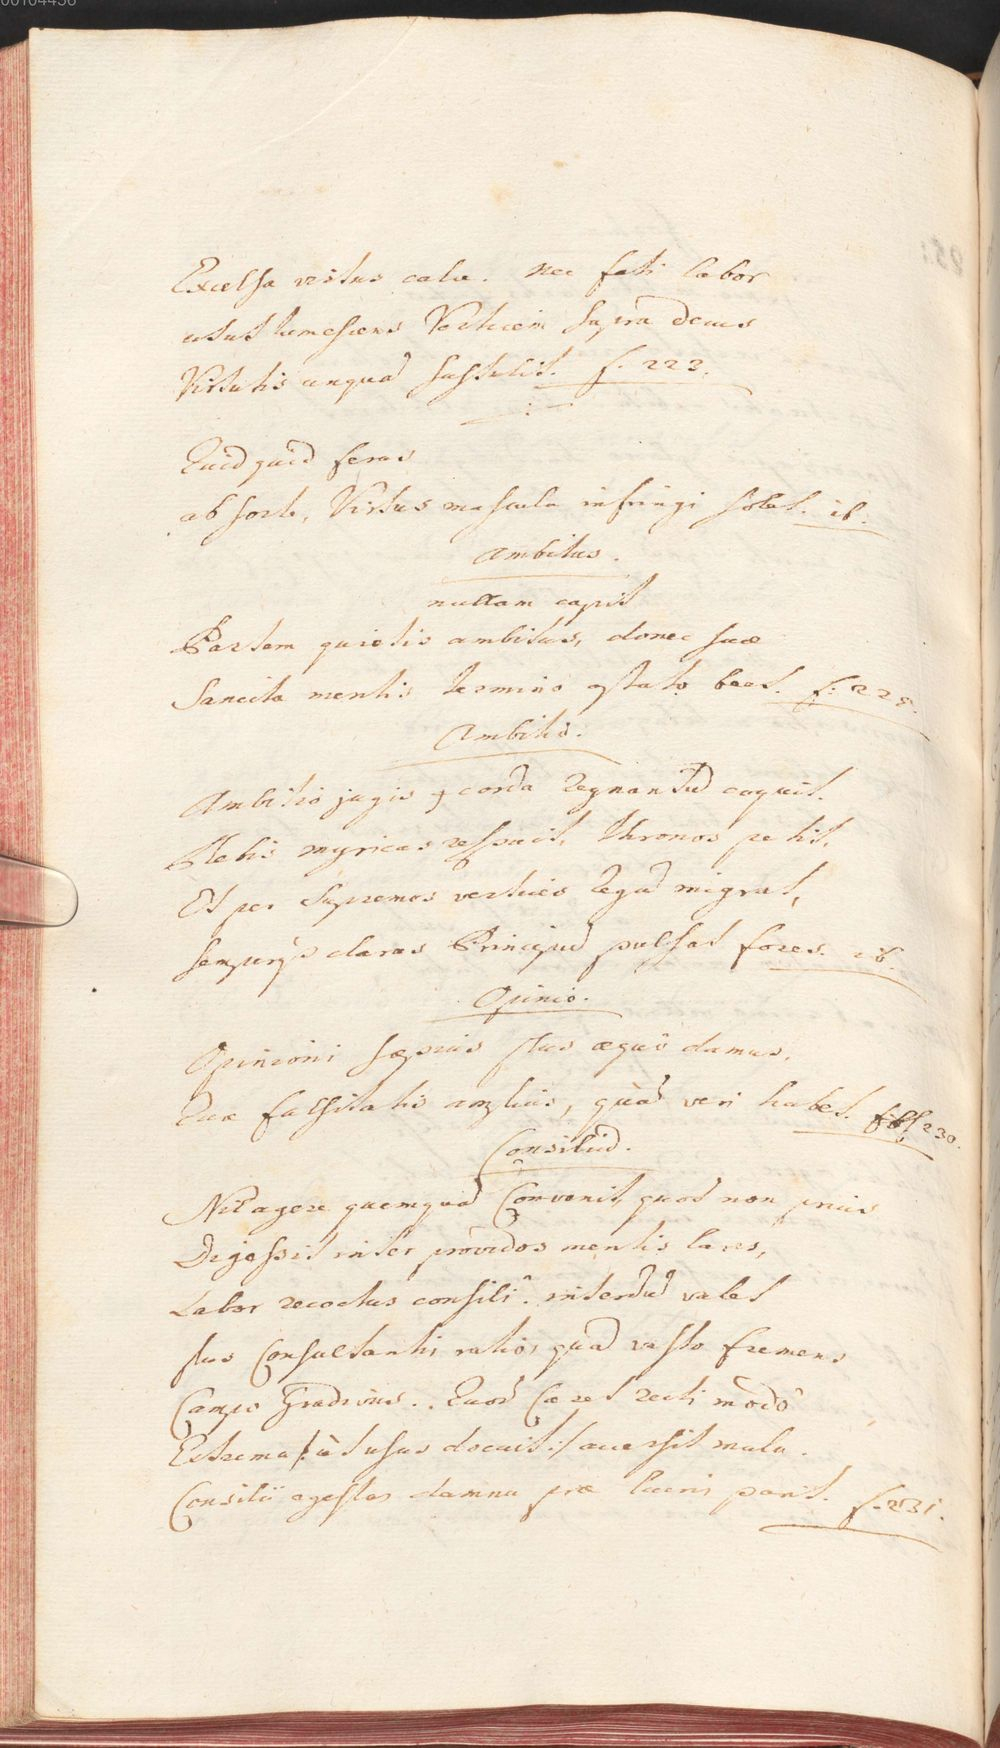 00104436
Excelsa virtus calce. nec fati labor
utut tumescens Verticem supra decus
Virtutis unquā sustulit. f. 223.
Quidquid feras
ab sorte, Virtus mascula infringi solet. ib.
Ambitus.
nullam capit
Partem quietis ambitus, donec suæ
Sancita mentis termino optato beet. f. 228.
Ambitio.
Ambitio jugis corda Regnantūd coquit.
Plebis myricas respuit, thronos petit,
Et per supremos vertices legūd migrat,
semperq3 claras Principūd pulsat fores. ib.
Opinio.
Opinioni sæpius plus æquô damus,
Quæ falsitatis amplius, quàm veri habet. f. 230.
Consiliūd.
Nil agere quemquā Convenit, quod non prius
Digessit inter providos mentis lares,
Labor recoctus consilî. interdūd valet
plus Consultantis ratio, quā vasto fremens
Campo Gradivus. . Quod Caret recti modô
Extrema /: ùt usus docuit :/ accersit mala.
Consilii egestas damna præ lucris parit. f. 231.